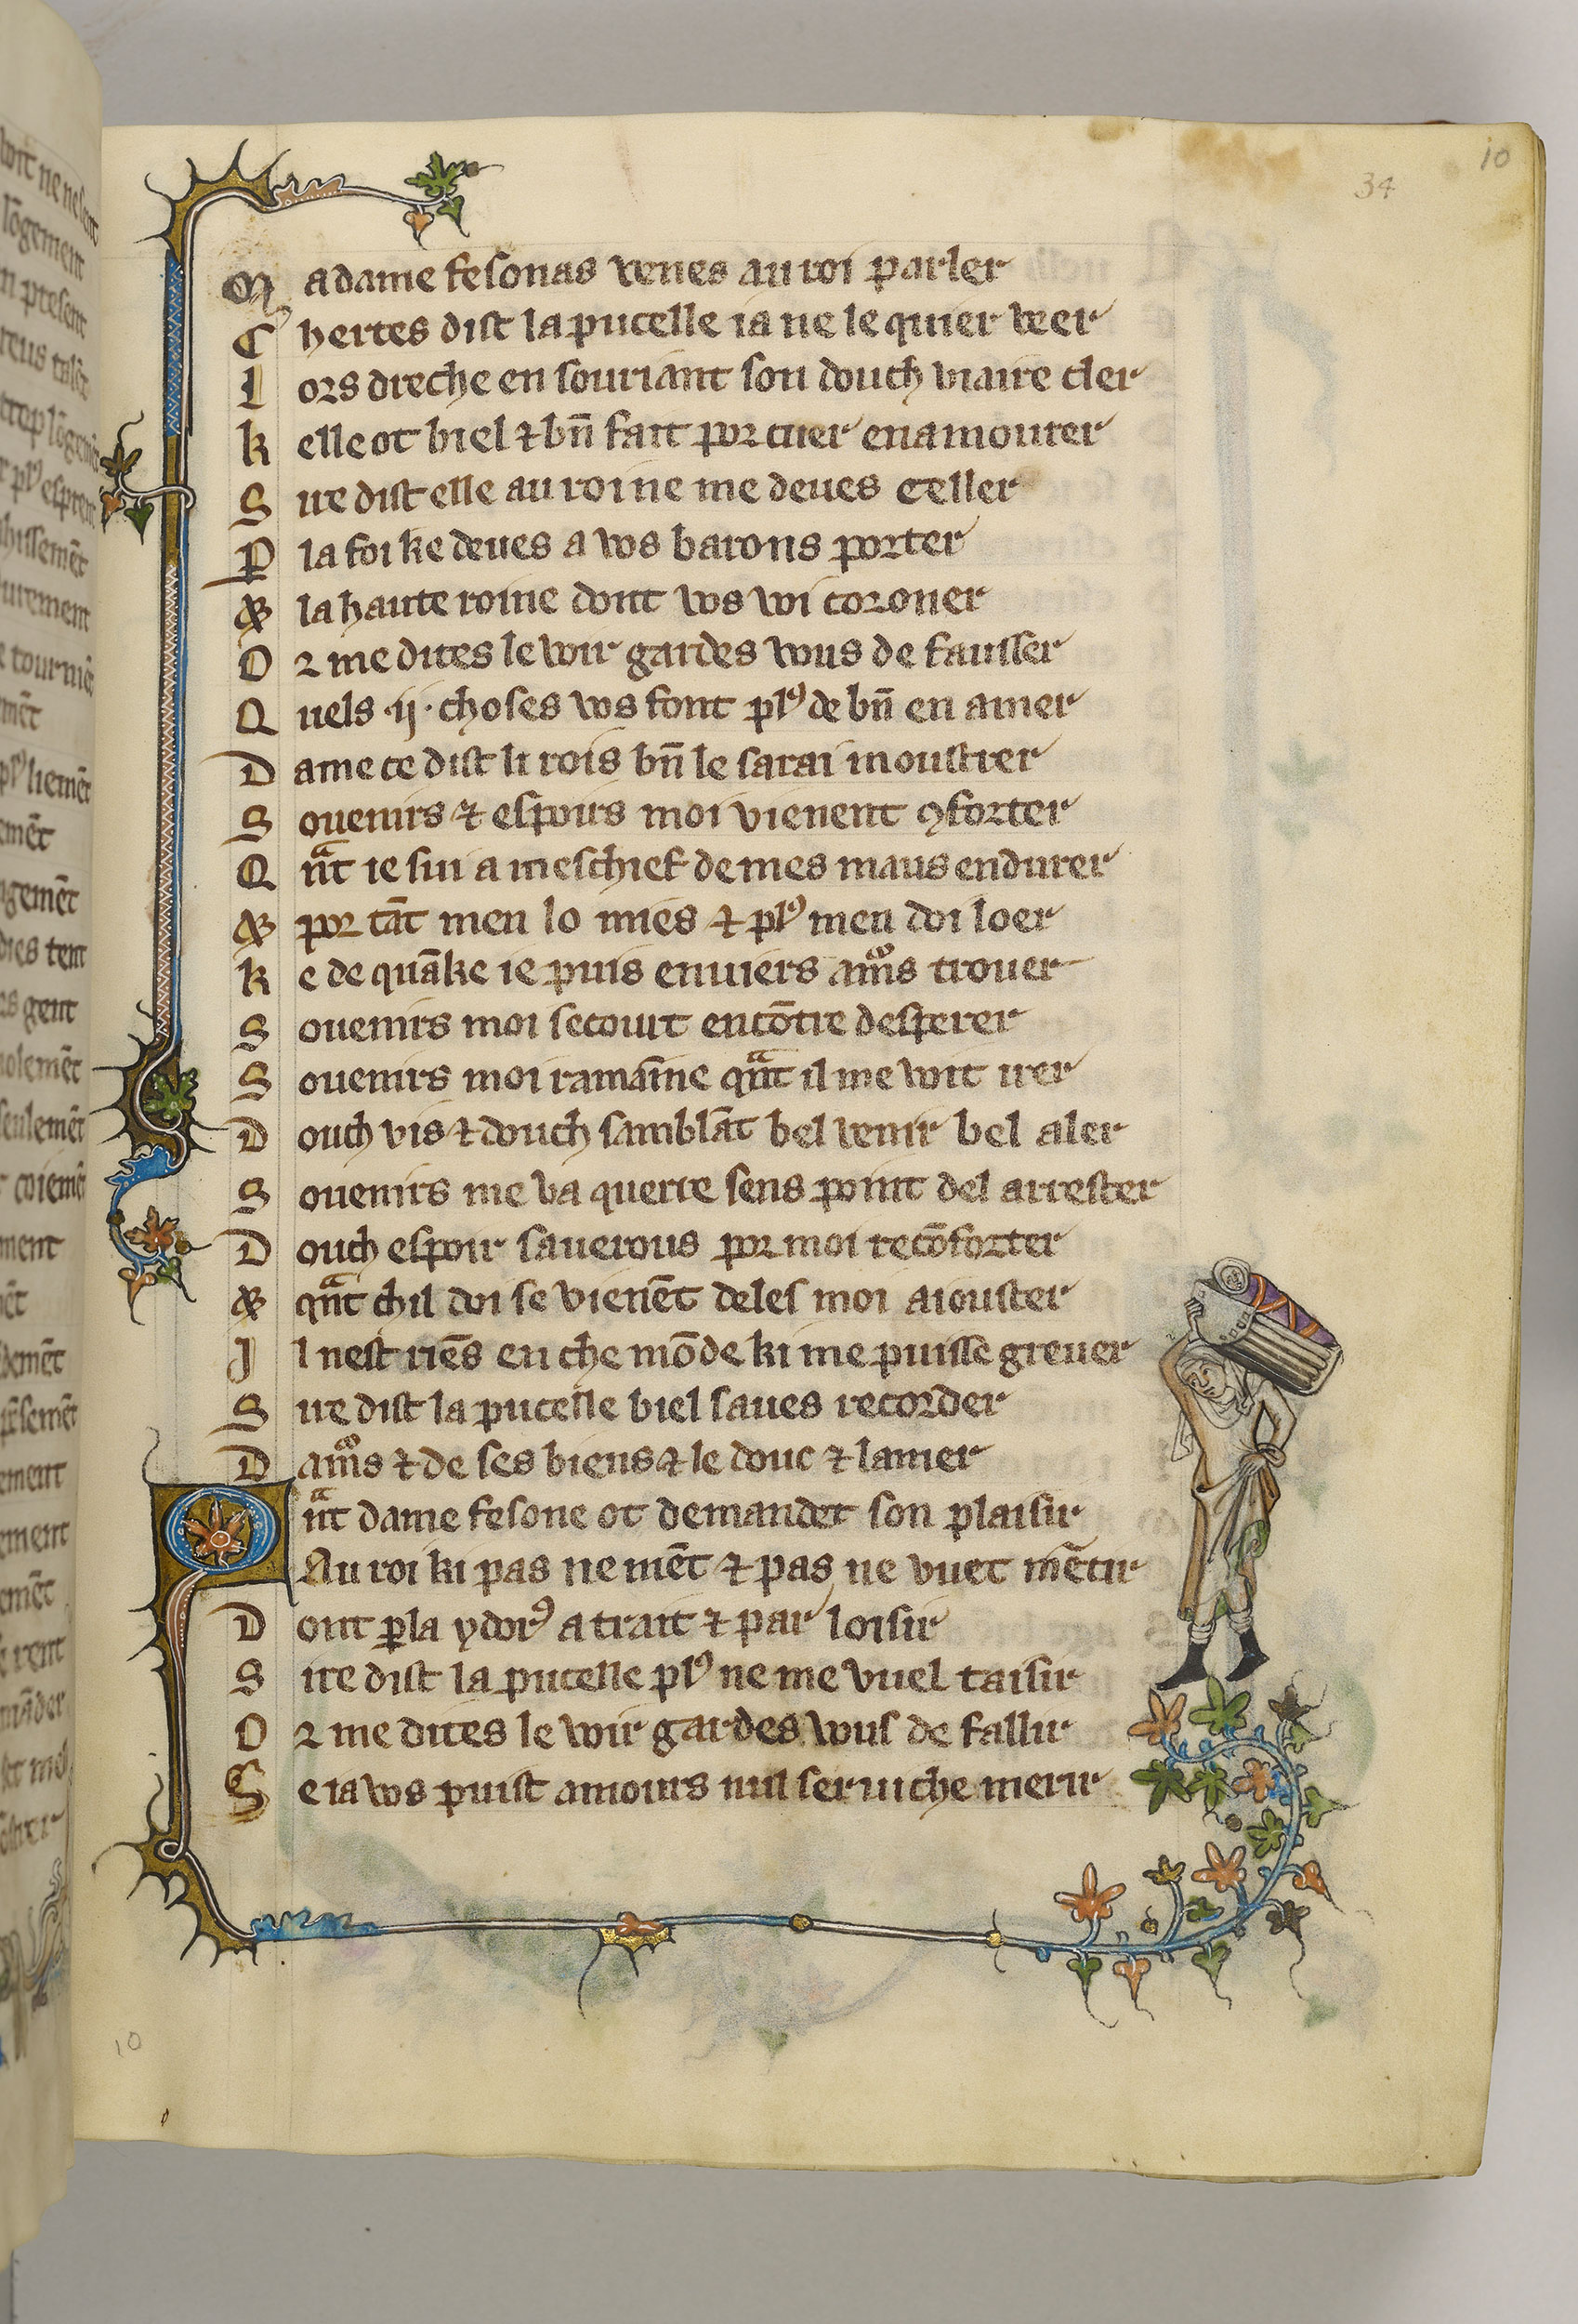 34
10
M adame fesonas venes au roi parler
C hertes dist la pucelle ia ne le quier veer
L ors dreche en souriant son douch viaire cler
k elle ot biel ⁊ bn̄ fait por cuer enamourer
S ire dist elle au roi ne me deues celler
P la foi ke deues a vos barons porter
⁊ la haute roine dont vos voi coroner
O r me dites le voir gardes vous de fausser
Q uels ·ij· choses vos font plꝰ de bn̄ en amer
D ame ce dist li rois bn̄ le sarai moustrer
S ouenirs ⁊ espoirs moi vienent ꝯforter
Q ͣnt ie sui a meschief de mes maus endurer
⁊ por tāt men lo mies ⁊ plꝰ men doi loer
k e de quāke ie puis enuiers amͦs trouer
S ouenirs moi secourt encōtre desperer
S ouenirs moi ramaine qͣnt il me voit irer
D ouch vis ⁊ douch samblāt bel venir bel aler
S ouenirs me va querre sens point del arrester
D ouch espoir sauerous por moi recōforter
⁊ qͣnt chil doi se vienēt deles moi aiouster
I l nest riēs en che mōde ki me puisse greuer
S ire dist la pucelle biel saues recorder
D amͦs ⁊ de ses biens ⁊ le douc ⁊ lamer
Q ͣnt dame fesone ot demandet son plaisir
Au roi ki pas ne mēt ⁊ pas ne vuet mētir
D ont ꝑla ydorꝰ a trait ⁊ par loisir
S ire dist la pucelle plꝰ ne me vuel taisir
O r me dites le voir gardes vous de fallir
S e ia vos puist amours nul seruiche merir
10